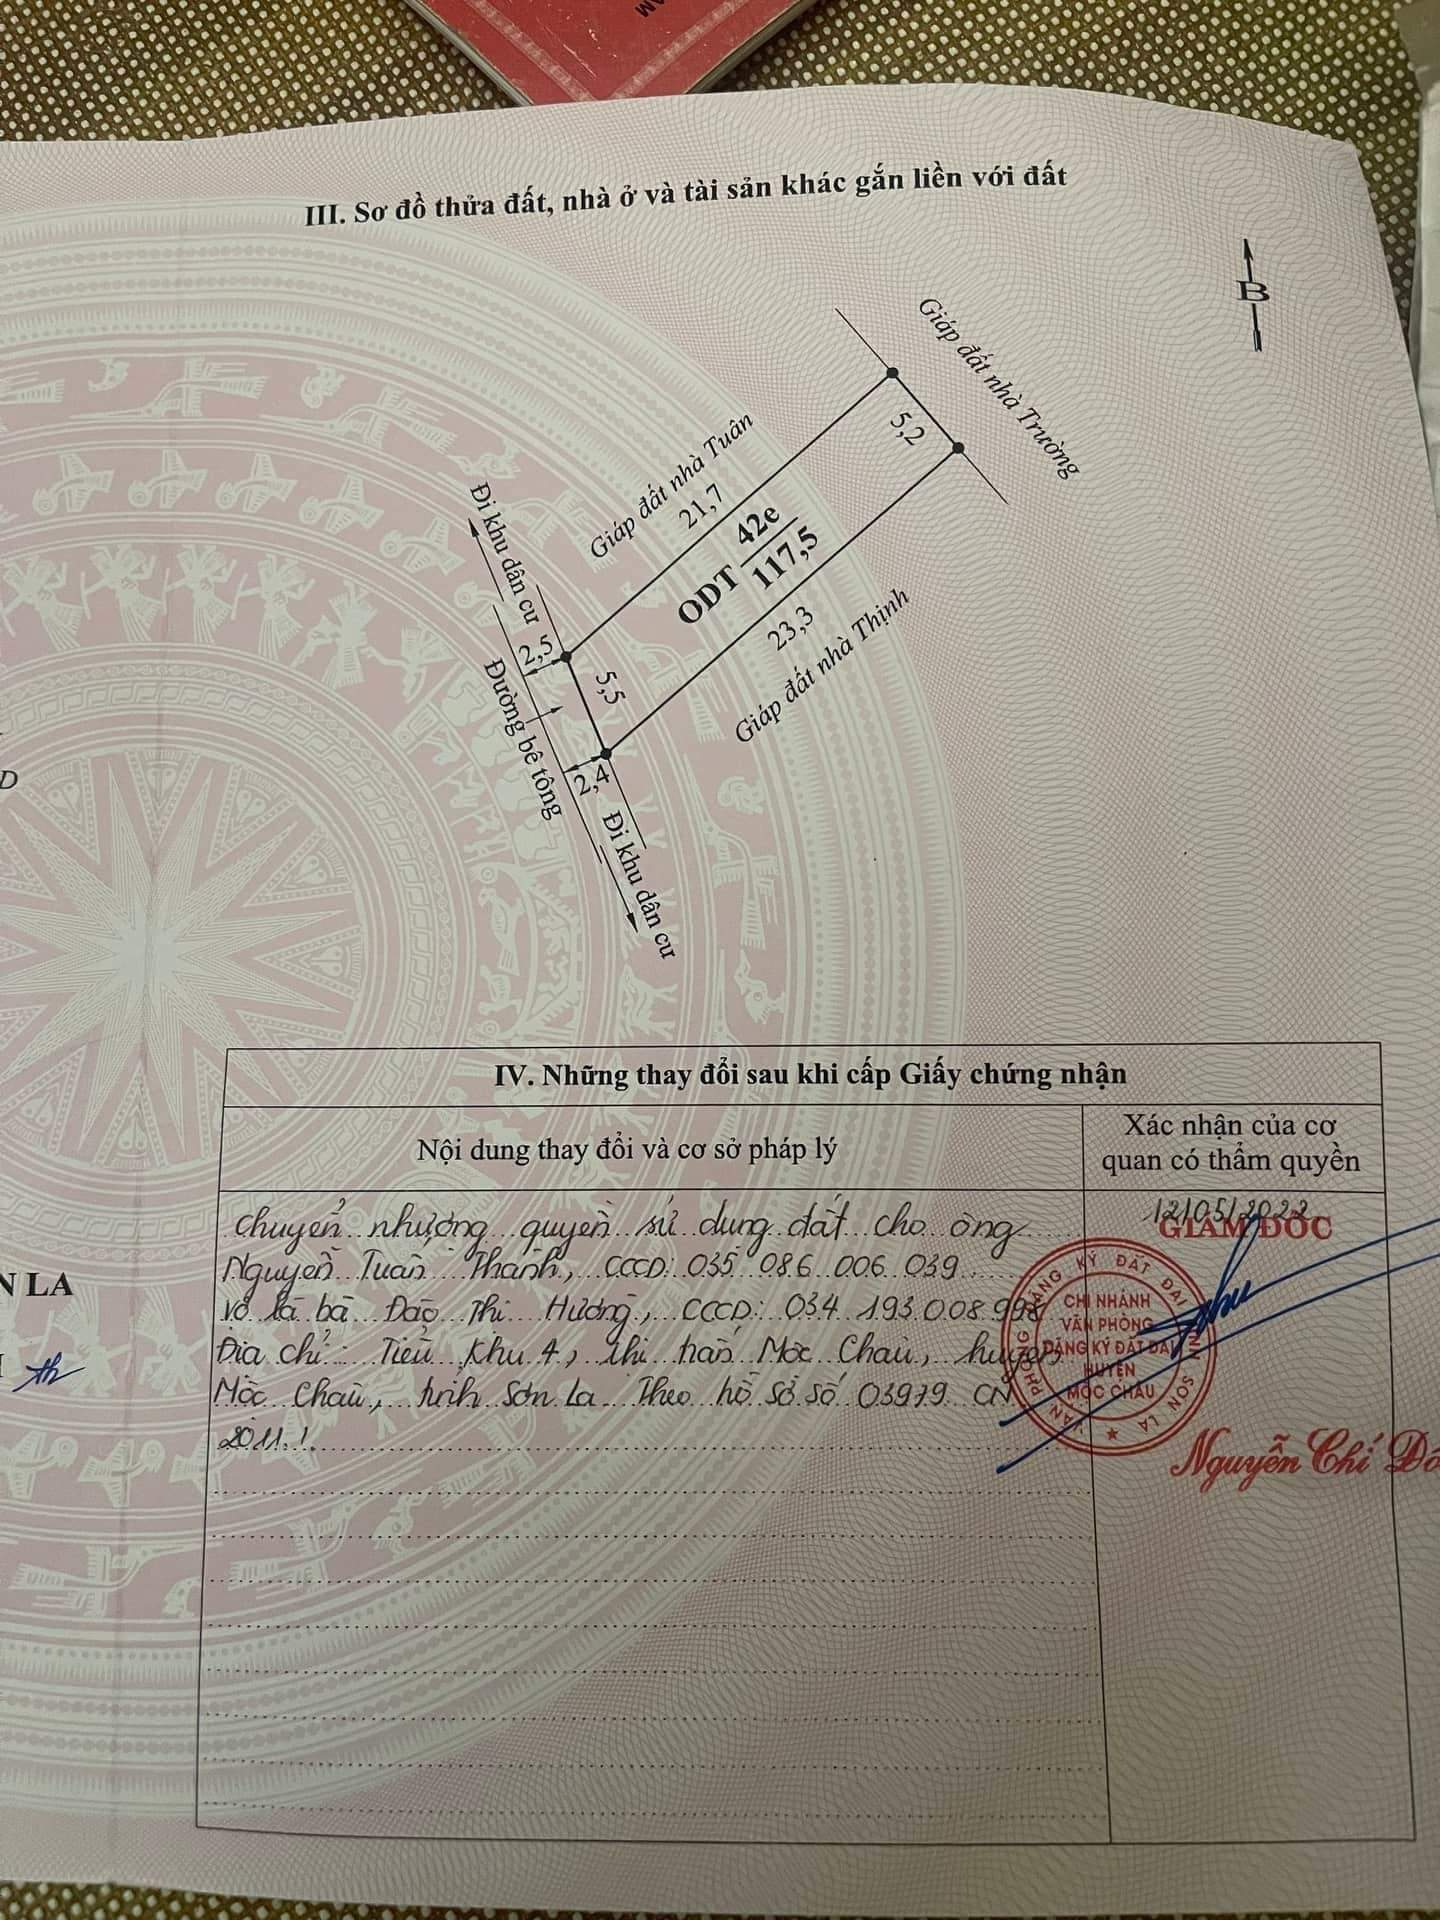 AM
III. Sơ đồ thửa đất, nhà ở và tài sản khác gắn liền với đất
B
Giáp đất nhà Trường
5,2
Giáp đất nhà Tuân
21,7
ODT 42e
117,5
23,3
Giáp đất nhà Thịnh
Đi khu dân cư
2,5
5,5
Đường bê tông
2,4
Đi khu dân cư
D
N LA
IV. Những thay đổi sau khi cấp Giấy chứng nhận
Nội dung thay đổi và cơ sở pháp lý
Xác nhận của cơ
quan có thẩm quyền
Chuyển nhượng quyền sử dụng đất cho ông
Nguyễn Tuấn Thành, CCCD: 035 086 006 039
Vợ là bà Đào Thị Hương, CCCD: 034 193 008 998
Địa chỉ: Tiểu Khu 4, thị trấn Mộc Châu, huyện
Mộc Châu, tỉnh Sơn La Theo hồ sơ số 03979 CN
2011.!
12/05/2022
GIÁM ĐỐC
VĂN PHÒNG ĐĂNG KÝ ĐẤT ĐAI TỈNH SƠN LA
CHI NHÁNH
VĂN PHÒNG
ĐĂNG KÝ ĐẤT ĐAI
HUYỆN
MỘC CHÂU
Nguyễn Chí Đô